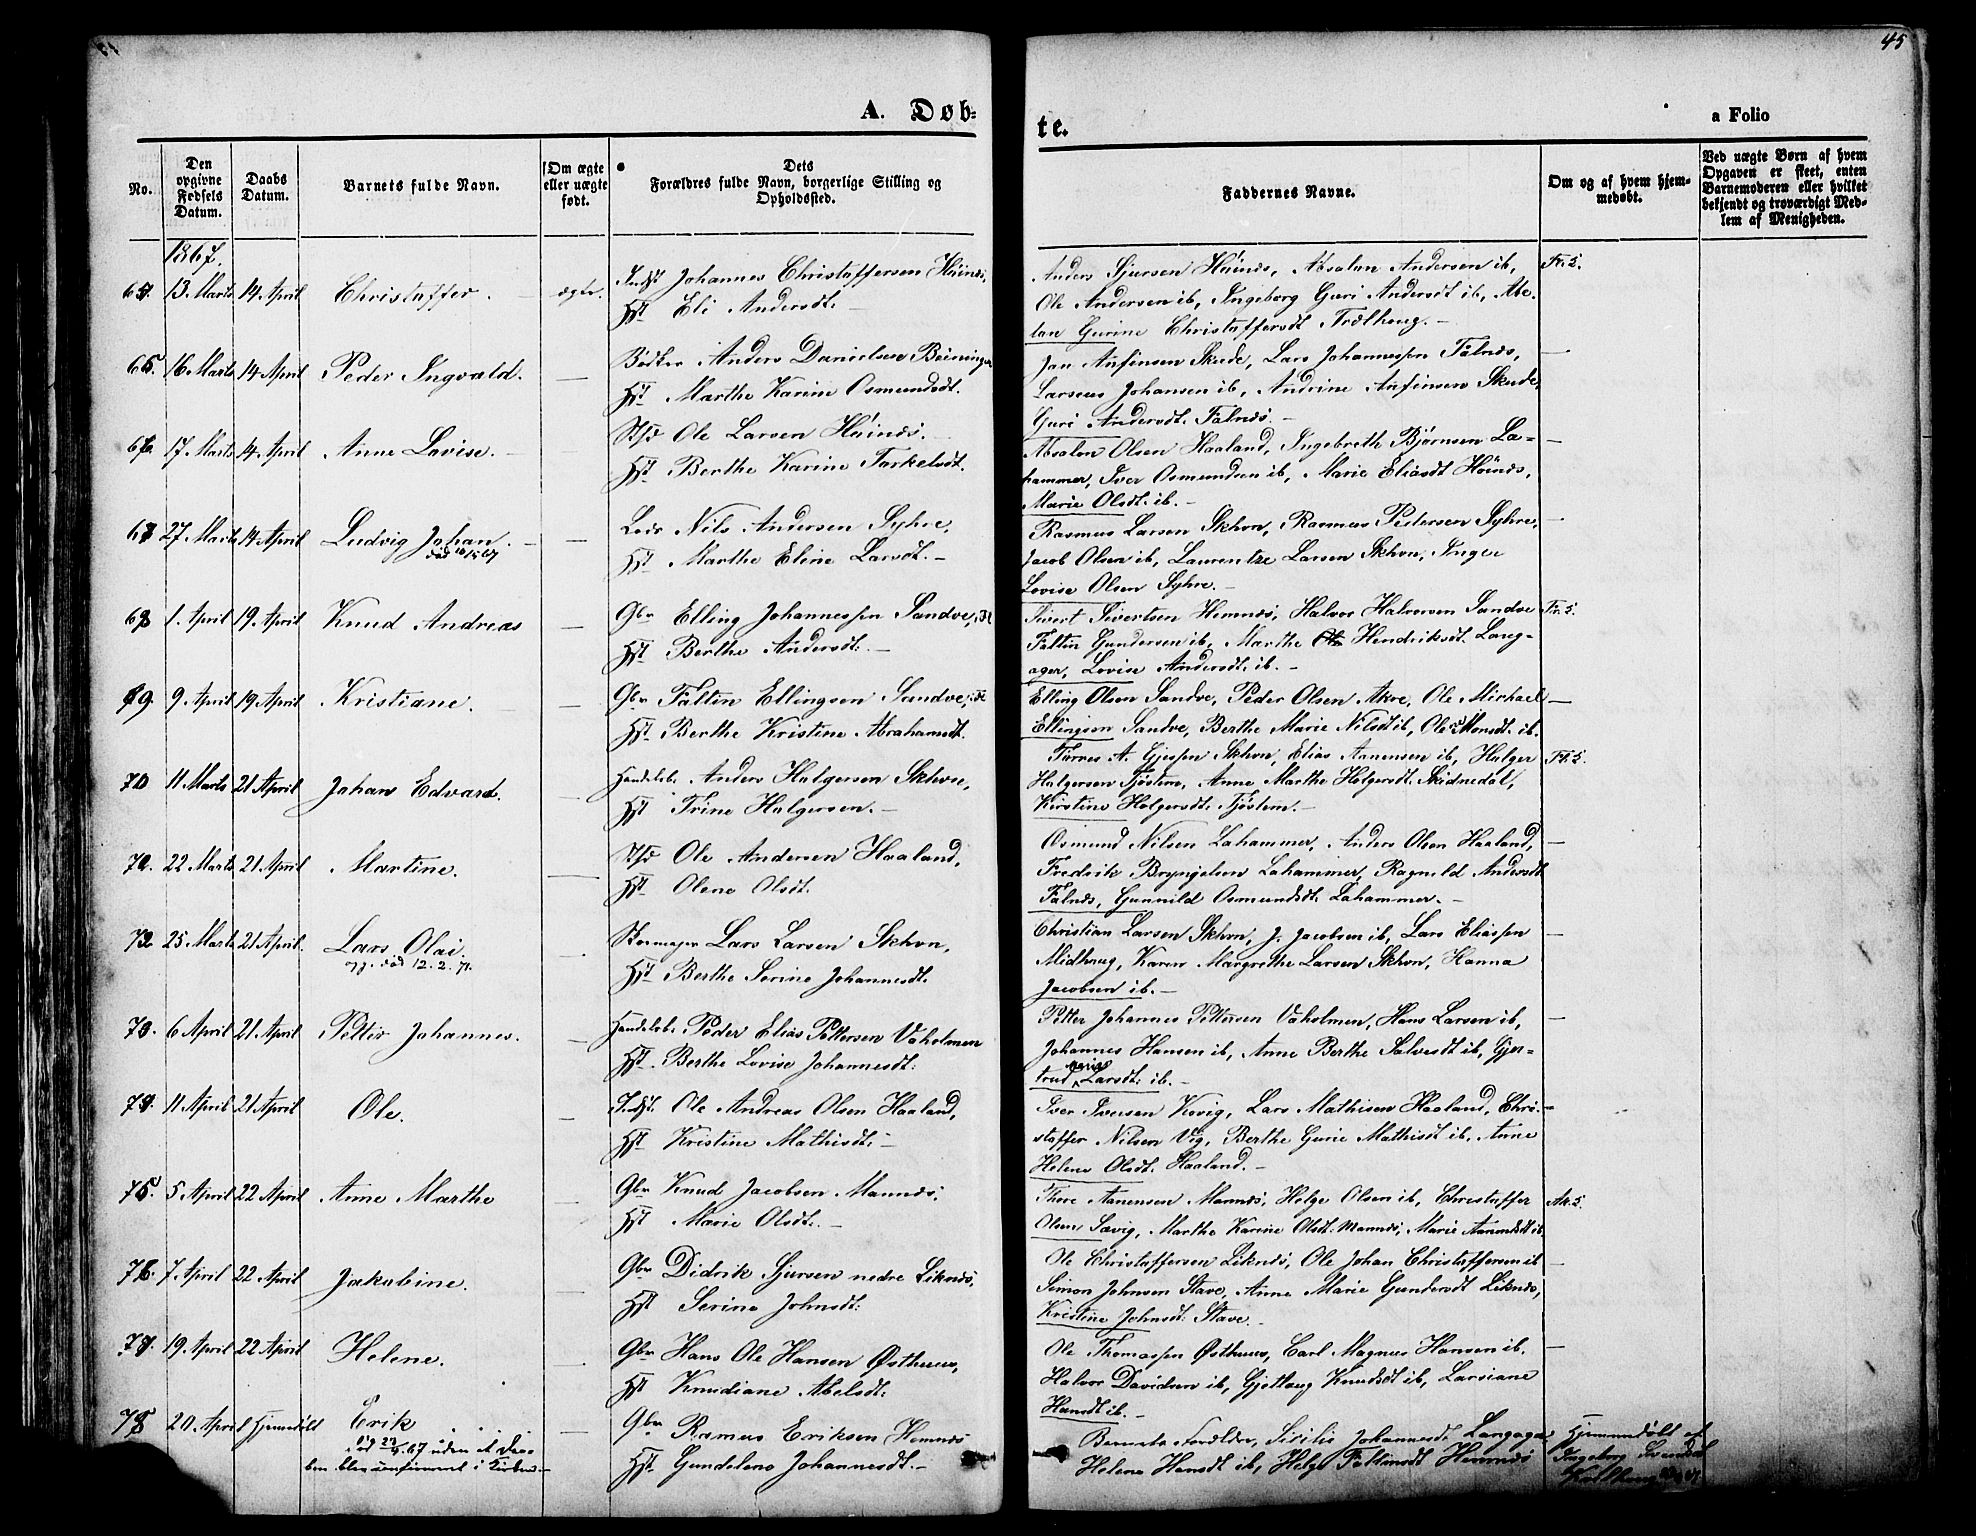 45
A. Døb-
te.
a Folio
No.
Den opgivne Fødsels Datum.
Daabs Datum.
Barnets fulde Navn.
Om ægte eller uægte født.
Dets Forældres fulde Navn, borgerlige Stilling og Opholdssted.
Faddernes Navne.
Om og af hvem hjemmedøbt.
Ved uægte Børn af hvem Opgaven er skeet, enten Barnemoderen eller hvilket bekjendt og troværdigt Medlem af Menigheden.
1867.
13 Marts 14 April Christaffer. ægte.
Indst Johannes Christaffersen Høinæs,
Hst Eli Andersdt.
Anders Sjursen Høinæs, Absalon Andersen ib,
Ole Andersen ib, Ingeborg Guri Andersdt ib, Abe-
lan Gurine Christaffersdt Trælhoug.
65. 16 Marts 14 April Peder Ingvald. —
Bødker Anders Danielsen
Hst Marthe Karine Osmundsdt.
Jan Anfinsen Skude, Lars Johannessen Falnæs,
Larseus Johansen ib, Andrine Anfinsen Skude,
Guri Andersdt. Falnæs.
66. 17 Marts 14 April Anne Lovise. —
Ole Larsen Høinæs.
Hst Berthe Karine Tarkelsdt.
Absalon Olsen Haaland, Ingebreth Bjørnsen La-
hammer, Iver Osmundsen ib, Marie Eliasdt Høinæs,
Marie Olsdt. ib.
67 27 Marts 14 April Ludvig Johan. —
Lods Nils Andersen Syhre,
Hst Marthe Eline Larsdt.
Rasmus Larsen Skhvn, Rasmus Pedersen Syhre,
Jacob Olsen ib, Laurentze Larsen Skhvn, Inger
Lovise Olsen Syhre.
68 1. April 19 April Knud Andreas —
Gbr Elling Johannessen Sandve,
Hst Berthe Andersdt.
Sivert Sivertsen Hemnæs, Halvor Halvorsen Sandve
Faltin Gundersen ib, Marthe Hendriksdt. Lang-
ager, Lovise Andersdt. ib.
69. 9. April 19 April Kristiane. —
Gbr Faltin Ellingsen Sandve,
Hst Berthe Kristine Abrahamsdt.
Elling Olsen Sandve, Peder Olsen Akre, Ole Michael
Ellingsen Sandve, Berthe Marie Nilsdt ib, Monsdt. ib.
70 11 Marts 21 April Johan Edvard. —
Handelsb. Anders Holgersen Skhvn,
Hst Trine Holgersen.
Tørres A. Gjessen Skhvn, Elias Aanensen ib, Holger
Holgersen Tjøstem, Anne Marthe Holgersdt. Skidnedal,
Kirstine Holgersdt. Tjøstem.
22 Marts 21 April Martine. —
Ole Andersen Haaland,
Hst Olene Olsdt.
Osmund Nilsen Lahammer, Anders Olsen Haaland,
Fredrik Bryngelsen Lahammer, Ragnild Andersdt
Falnæs, Gunnild Osmundsdt. Lahammer.
72 25 Marts 21 April. Lars Olai.
død 12. 2. 71.
Lars Larsen Skhvn,
Hst Berthe Serine Johannesdt.
Christian Larsen Skhvn, J. Jacobsen ib, Lars Eliassen
Midhoug, Karen Margrethe Larsen Skhvn, Hanna
Jacobsen ib.
73. 6 April 21 April Petter Johannes. —
Handelsb. Peder Elias Pettersen Vaholmen
Hst. Berthe Lovise Johannesdt.
Petter Johannes Pettersen Vaholmen, Hans Larsen ib,
Johannes Hansen ib, Anne Berthe Salvesdt ib, Gjer-
trud Marie Larsdt. ib.
74. 11 April 21 April Ole. —
Indst. Ole Andreas Olsen Haaland,
Hst Kristine Mathisdt.
Iver Iversen Kovig, Lars Mathisen Haaland, Chri-
staffer Nilsen Vig, Berthe Gurie Mathisdt ib, Anne
Helene Olsdt. Haaland.
75. 5 April 22 April Anne Marthe —
Gbr Knud Jacobsen Mannæs,
Hst Marie Olsdt.
Thore Aanensen Mannæs, Helge Olsen ib, Christaffer
Olsen Sævig, Marthe Karine Olsdt. Mannæs, Marie Aanensdt ib.
76. 7 April 22 April Jakobine. —
Gbr Didrik Sjursen nedre Liknæs,
Hst Serine Johnsdt.
Ole Christaffersen Liknæs, Ole Johan Christaffersen ib
Simon Johnsen Stave, Anne Marie Gundersdt Liknæs,
Kristine Johnsdt. Stave.
77. 19 April 22 April Helene.
Gbr Hans Ole Hansen Østhuus,
Hst Knudiane Abelsdt.
Ole Thomassen Østhuus, Carl Magnus Hansen ib.
Halvor Davidsen ib, Gjetloug Knudsdt ib, Larsiane
Hansdt ib.
78 20 April Hjemmedøbt Erik
Gbr Rasmus Eriksen Hemnæs
Hst Gundelene Johannesdt.
Barnets Forældre, Sisilie Johannesdt Langager
Helene Hansdt ib, Helge Faltinsdt Hemnæs
Hjemmedøbt af
Ingeborg